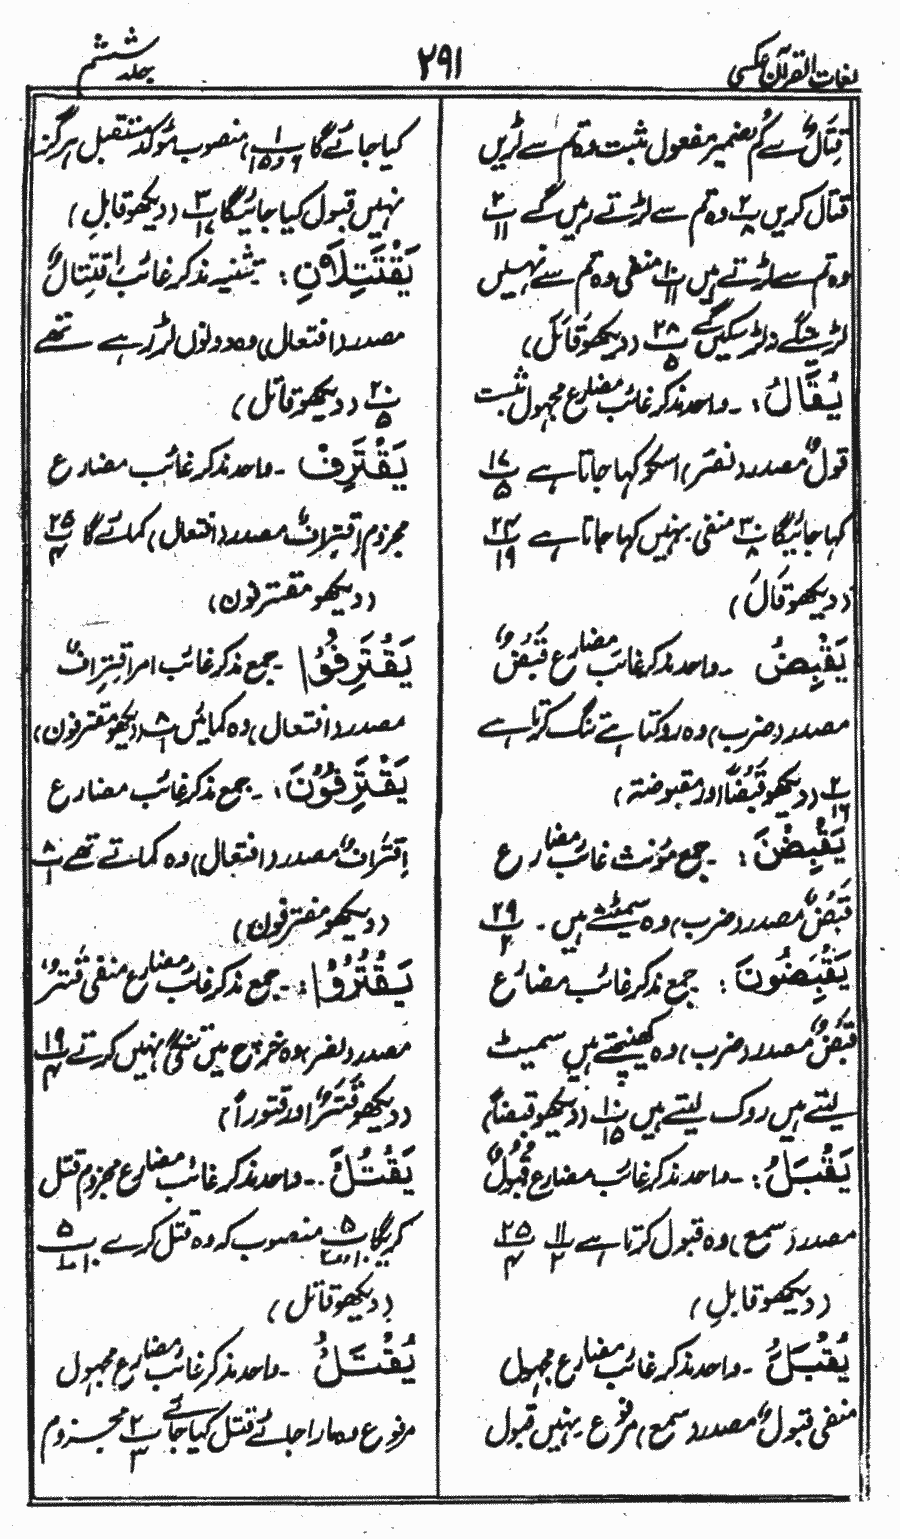 لغات القرآن عکسی
۲۹۱
جلد ششم
قِتَالٌ سے کُم ضمیر مفعول مثبت وہ تم سے لڑیں
قتال کریں پ۲/۸ وہ تم سے لڑتے رہیں گے پ۲/۱۱
وہ تم سے لڑتے ہیں پ۱۰/۱۱ منفی وہ تم سے نہیں
لڑیں گے نہ لڑ سکیں گے پ۲۸/۵ (دیکھو قَاتَلَ)
یُقَالُ: ۔ واحد مذکر غائب مضارع مجہول مثبت
قولٌ مصدر (نصَر) اسکو کہا جاتا ہے پ۱۷/۵
کہا جائیگا پ۳۰/۸ منفی نہیں کہا جاتا ہے پ۲۴/۱۹
(دیکھو قَالَ)
یَقْبِضُ ۔ واحد مذکر غائب مضارع قَبْضٌ
مصدر (ضرب) وہ روکتا ہے تنگ کرتا ہے
پ۲/۱۶ (دیکھو قَبْضًا اور مقبوضۃ)
یَقْبِضْنَ: ۔ جمع مؤنث غائب مضارع
قَبْضٌ مصدر (ضرب) وہ سمیٹتے ہیں ۔ پ۲۹/۲
یَقْبِضُونَ: جمع مذکر غائب مضارع
قَبْضٌ مصدر (ضرب) وہ کھینچتے ہیں سمیٹ
لیتے ہیں روک لیتے ہیں پ۱۰/۱۵ (دیکھو قبضنا)
یَقْبَلُ: ۔ واحد مذکر غائب مضارع قبولٌ
مصدر (سمع) وہ قبول کرتا ہے پ۱۱/۲ پ۲۵/۴
(دیکھو قابلِ)
یُقْبَلُ ۔ واحد مذکر غائب مضارع مجہول
منفی قبولٌ مصدر (سمع) مرفوع نہیں قبول
کیا جائے گا پ۱/۶ و ۱۵) منصوب مؤکد مستقبل ہرگز
نہیں قبول کیا جائیگا پ۳/۱۷ (دیکھو قابلِ)
یَقْتَتِلَانِ: تثنیہ مذکر غائب اقتتالٌ
مصدر (افتعال) وہ دونوں لڑ رہے تھے
پ۲۰/۵ (دیکھو قاتل)
یَقْتَرِفْ ۔ واحد مذکر غائب مضارع
مجزوم اِقترافٌ مصدر (افتعال) کمائے گا پ۲۵/۴
(دیکھو مقترفون)
یَقْتَرِفُوا ۔ جمع مذکر غائب امر اقترافٌ
مصدر (افتعال) وہ کمائیں پ۸/۱ (دیکھو مقترفون)
یَقْتَرِفُونَ: ۔ جمع مذکر غائب مضارع
اِقترافٌ مصدر (افتعال) وہ کماتے تھے پ۸/۱
(دیکھو مقترفون)
یَقْتُرُوا: ۔ جمع مذکر غائب مضارع منفی قَتْرٌ
مصدر (نصر) وہ خرچ میں تنگی نہیں کرتے پ۱۹/۴
(دیکھو قَتَرٌ اور قتورًا)
یَقْتُلُ: ۔ واحد مذکر غائب مضارع مجزوم قتل
کریگا پ۵/۱۰ منصوب کہ وہ قتل کرے پ۵/۱۰
(دیکھو قاتل)
یُقْتَلُ ۔ واحد مذکر غائب مضارع مجہول
مرفوع وہ مارا جائے قتل کیا جائے پ۲/۳ مجزوم